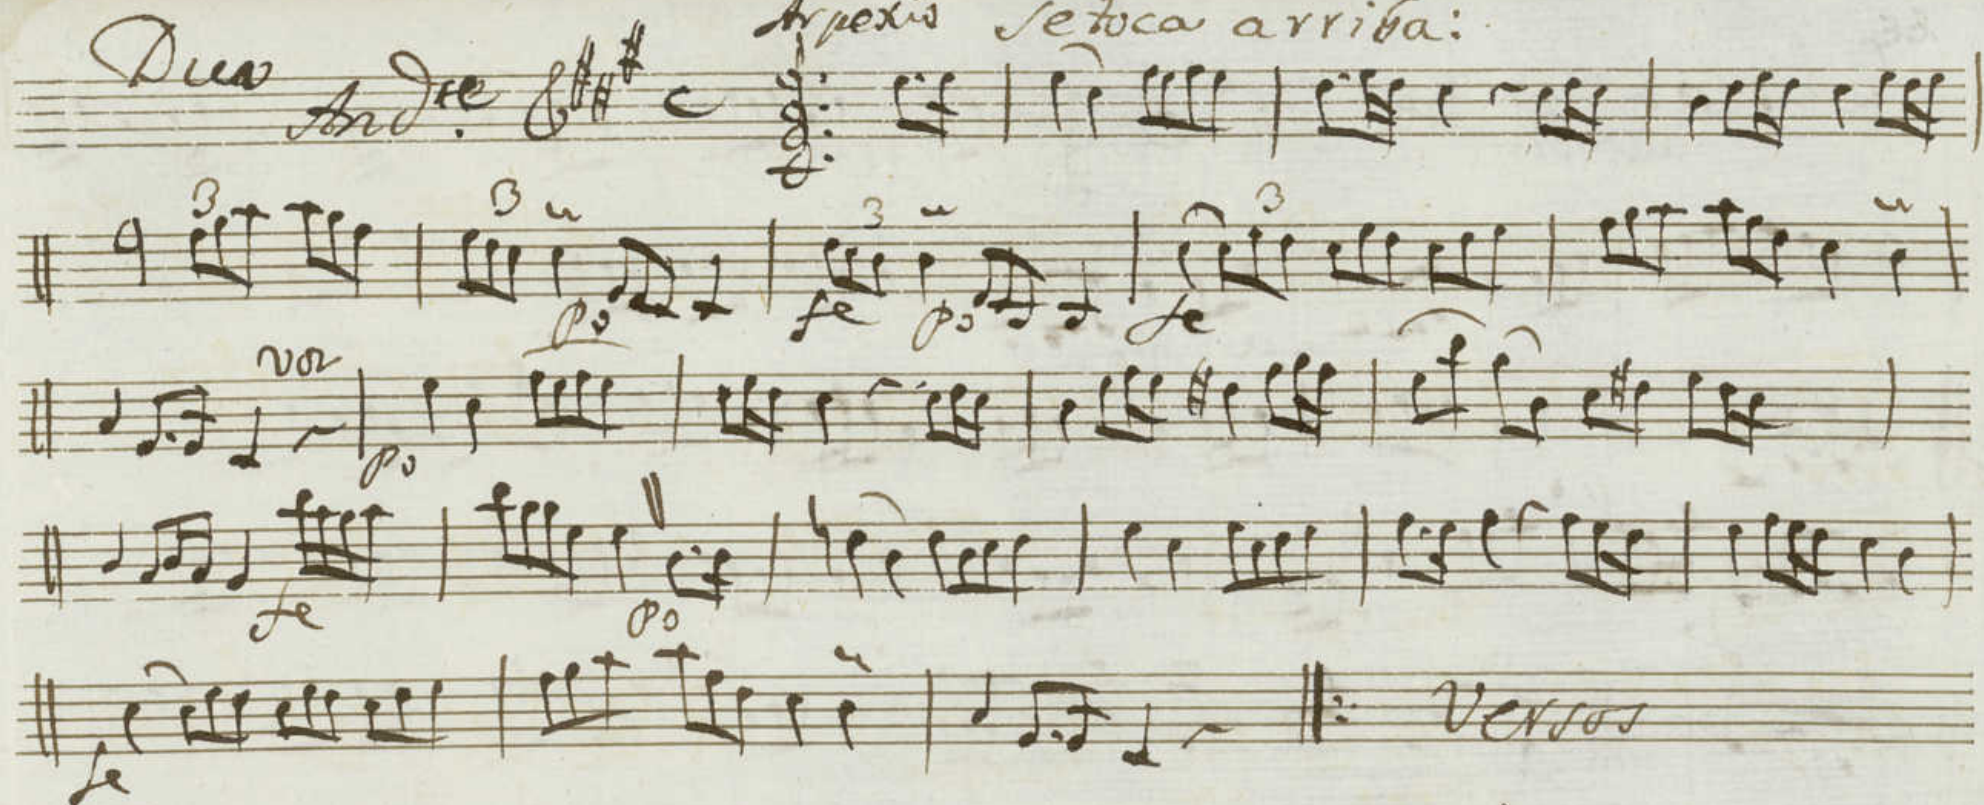 Arpexio Se toca arriba:
Duo
Andte.
3 3 3 3
po fe po fe
voz
po
fe po
fe
Versos